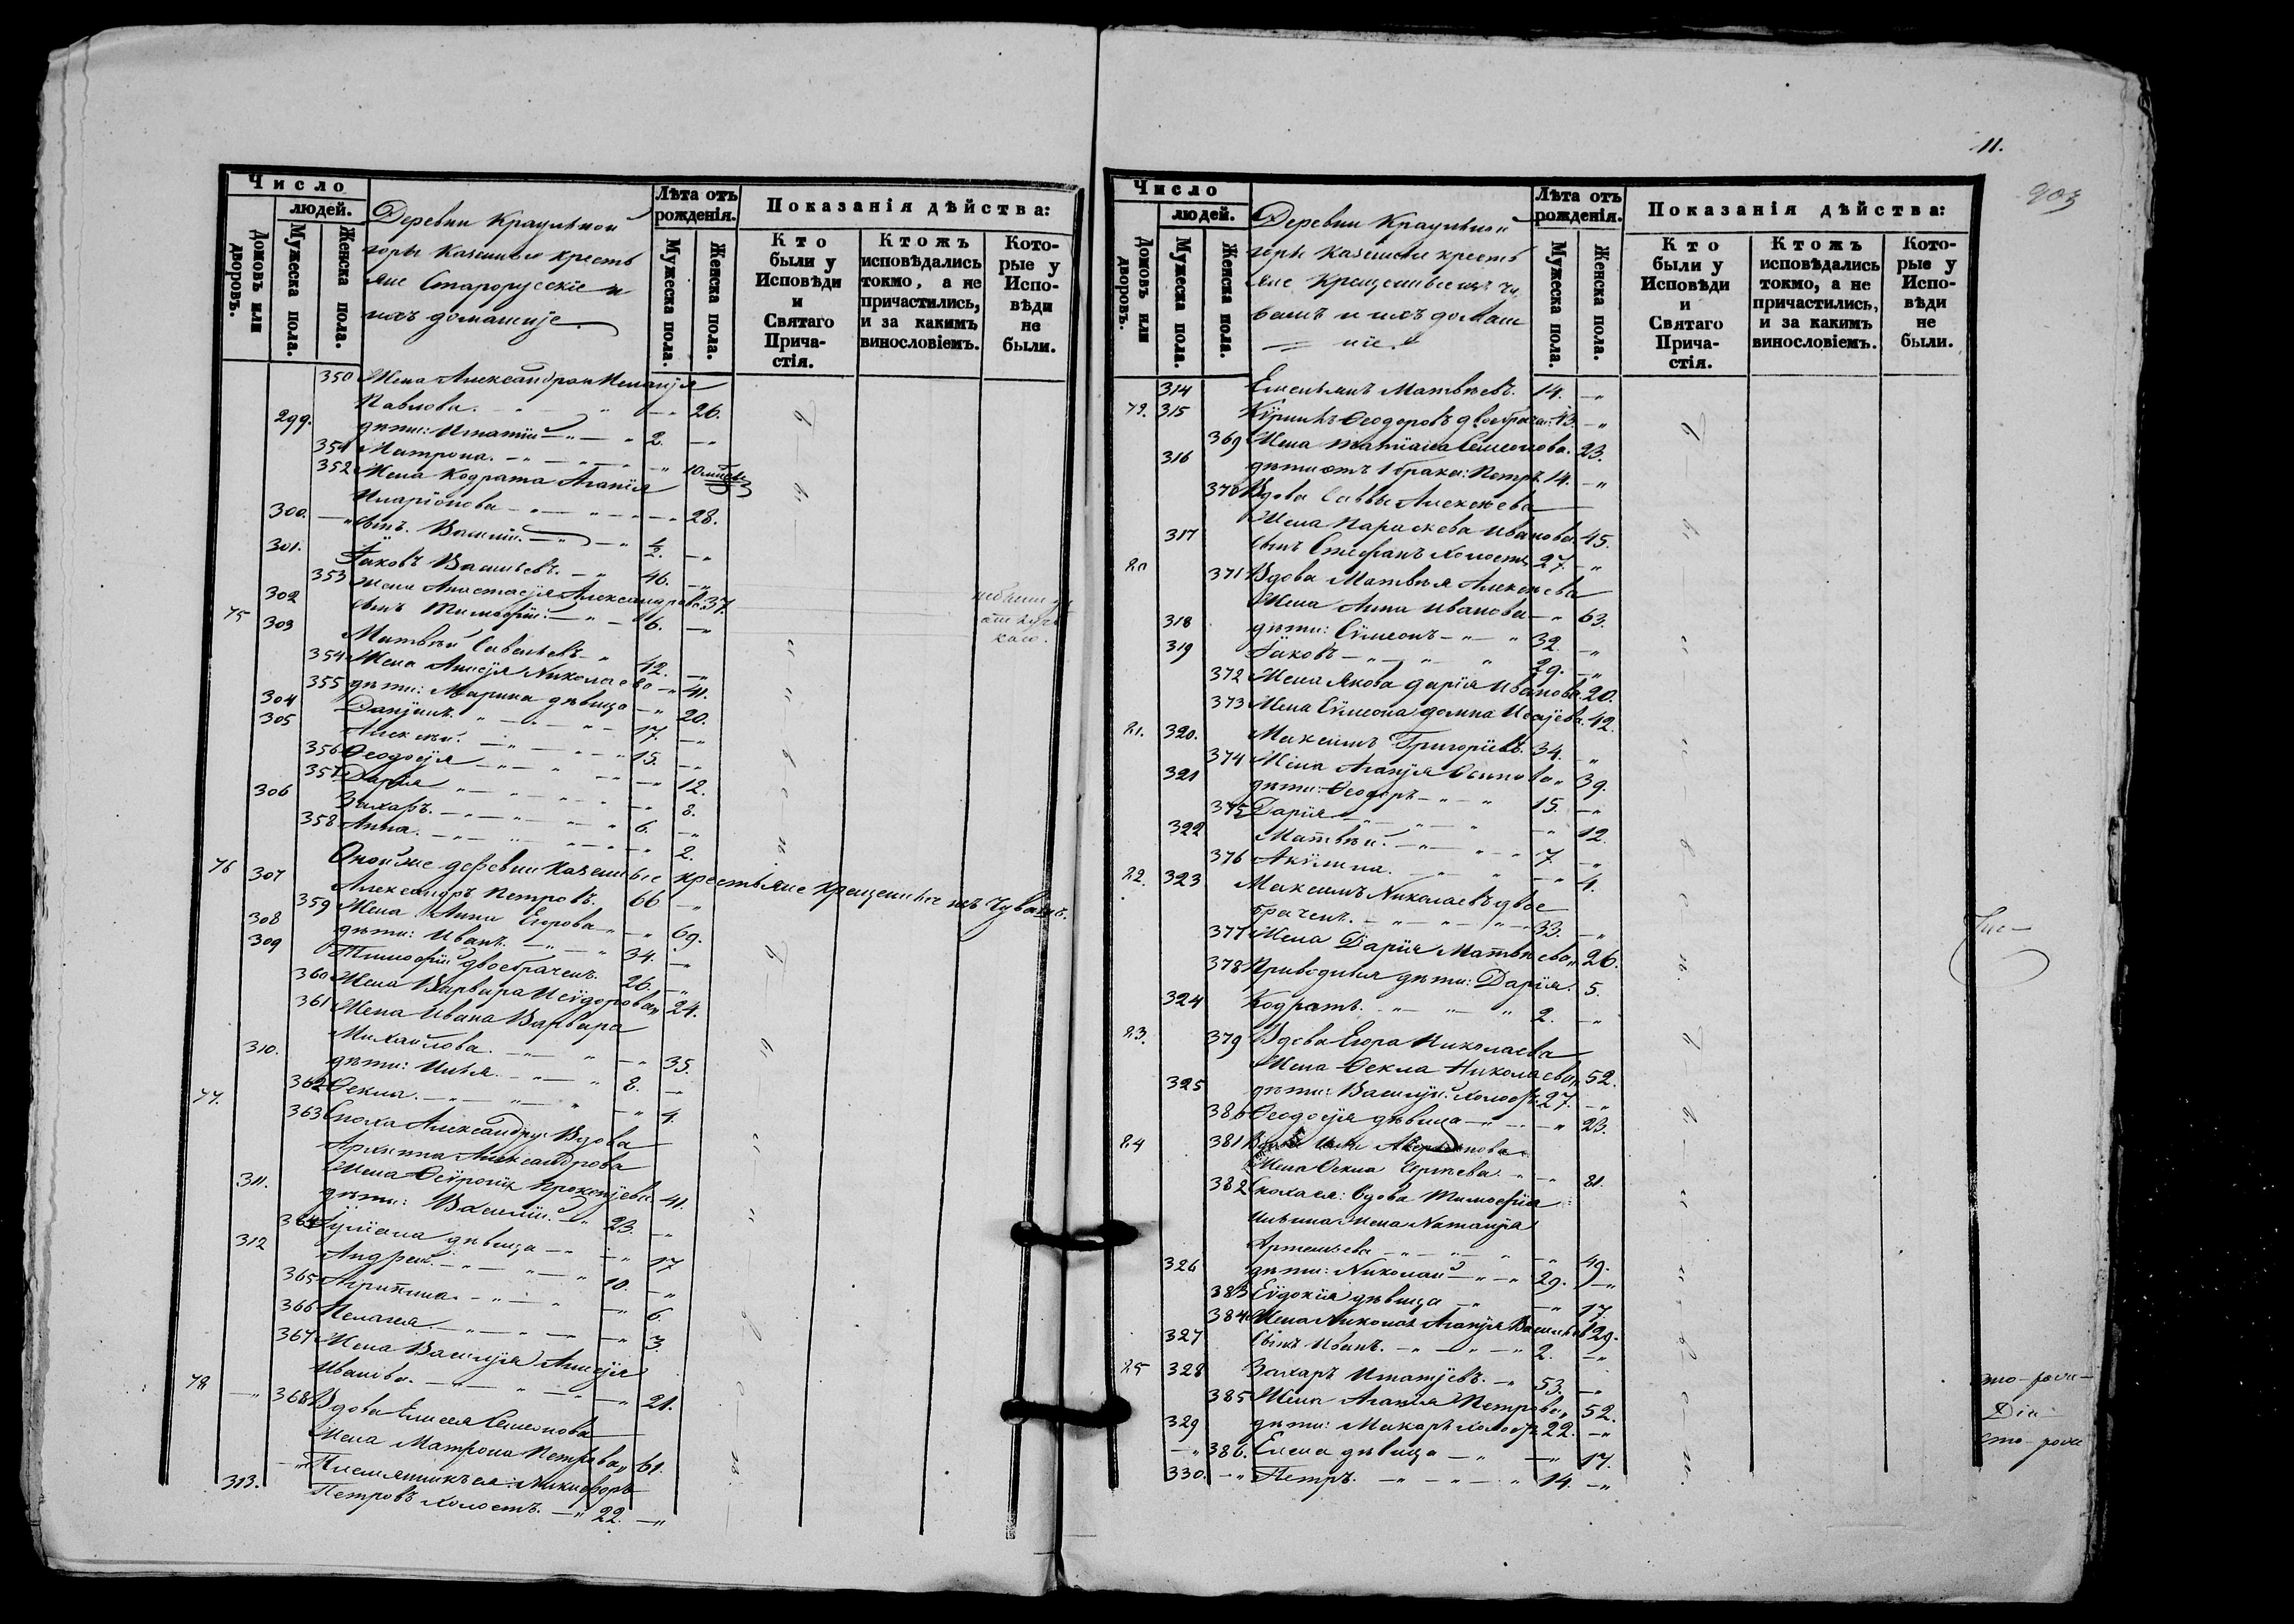 Число
людей.
Домовъ или дворовъ.
Мужеска пола.
Женска пола.
Деревни Краульной
горы Казенные кресть
яне Старорусскіе и
ихъ домашніе.
Лѣта отъ рожденія.
Мужеска пола.
Женска пола.
Показанія дѣйства:
Кто были у Исповѣди и Святаго Причастія.
Ктожъ исповѣдались токмо, а не причастились, и за какимъ винословіемъ.
Которые у Исповѣди не были.
350 Жена Александра Меланія
Павлова. 26.
299. дѣти: Игнатій 2.
351 Матрона. 10 мѣсяц
352 Жена Кодрата Агапія
Иларіонова 28.
300. сынъ Василій. ½.
301. Іаковъ Васильевъ. 46.
353 Жена Анастасія Александрова 37.
302 сынъ Тимофей. 6.
75 303 Матвѣй Савельевъ 42.
354 Жена Анисія Николаева 41.
355 дѣти: Марина дѣвица 20.
304 Даніилъ. 17.
305 Алексѣй. 15.
356 Ѳеодосія 12.
357 Дарія 8.
306 Захаръ. 6.
358 Анна. 2.
Оной же деревни Казенные крестьяне крещенные изъ Чувашъ.
76 307 Александръ Петровъ. 66
359 Жена Анна Егорова 69.
308 дѣти: Иванъ. 34.
309 Тимофей двоебраченъ. 26.
360 Жена Варвара Исидорова 24.
361 Жена Ивана Варвара
Михайлова. 35.
310. дѣти: Илья. 8.
362 Ѳекла. 4.
77. 363 Сноха Александра Вдова
Архиппа Александрова
Жена Ѳевронія Прокопьева 41.
311. дѣти: Василій. 23.
364 Іуліана дѣвица 17
312 Андрей. 10.
365 Агрипина. 6.
366 Пелагея. 3.
367 Жена Василія Анисія
Иванова. 21.
78 368 Вдова Елисея Семенова
Жена Матрона Петрова 61.
Племянникъ ея: Никифоръ
313. Петровъ холостъ. 22.
11.
903
Число
людей.
Домовъ или дворовъ.
Мужеска пола.
Женска пола.
Деревни Краульной
горы Казенные кресть
яне Крещенные изъ Чу
вашъ и ихъ домаш
ніе.
Лѣта отъ рожденія.
Мужеска пола.
Женска пола.
Показанія дѣйства:
Кто были у Исповѣди и Святаго Причастія.
Ктожъ исповѣдались токмо, а не причастились, и за какимъ винословіемъ.
Которые у Исповѣди не были.
314 Емельянъ Матвѣевъ. 14.
79. 315 Кириллъ Ѳеодоровъ двоебрачн. 43.
369 Жена Татіана Семенова. 23.
316 дѣти отъ 1 брака: Петръ 14.
370 Вдова Саввы Алексѣева
Жена Параскева Иванова 45.
317 сынъ Стефанъ холостъ 27.
80 371 Вдова Матвѣя Алексѣева
Жена Анна Иванова 63.
318 дѣти: Симеонъ 32.
319 Іаковъ 29.
372 Жена Якова Дарія Иванова 20.
373 Жена Симеона Домна Исаіева 42.
81. 320. Максимъ Григоріевъ 34.
374 Жена Агапія Осипова 39.
321 дѣти: Ѳеодоръ 15.
375 Дарія 12.
322 Матвѣй. 7.
376 Акилина. 4.
82. 323 Максимъ Николаевъ двое
браченъ. 33.
377 Жена Дарія Матвѣева 26.
378 Приводныя дѣти: Дарія. 5.
324 Кодратъ. 2.
83. 379 Вдова Егора Николаева
Жена Ѳекла Николаева 52.
325 дѣти: Василій холостъ 27.
380 Ѳеодосія дѣвица 23.
84 381 Вдова Ильи
Жена Ѳекла Сергѣева. 81.
382 Сноха ея: Вдова Тимофея
Ильина Жена Наталія
Артемьева 49.
326 дѣти: Николай 29.
383 Евдокія дѣвица 17.
384 Жена Николая Агапія Васильев 29.
327 сынъ Иванъ. 2.
85 328 Захаръ Игнатьевъ. 53.
385 Жена Агапія Петрова 52.
329 дѣти: Макаръ холостъ 22.
386. Елена дѣвица 17.
330. Петръ. 14.